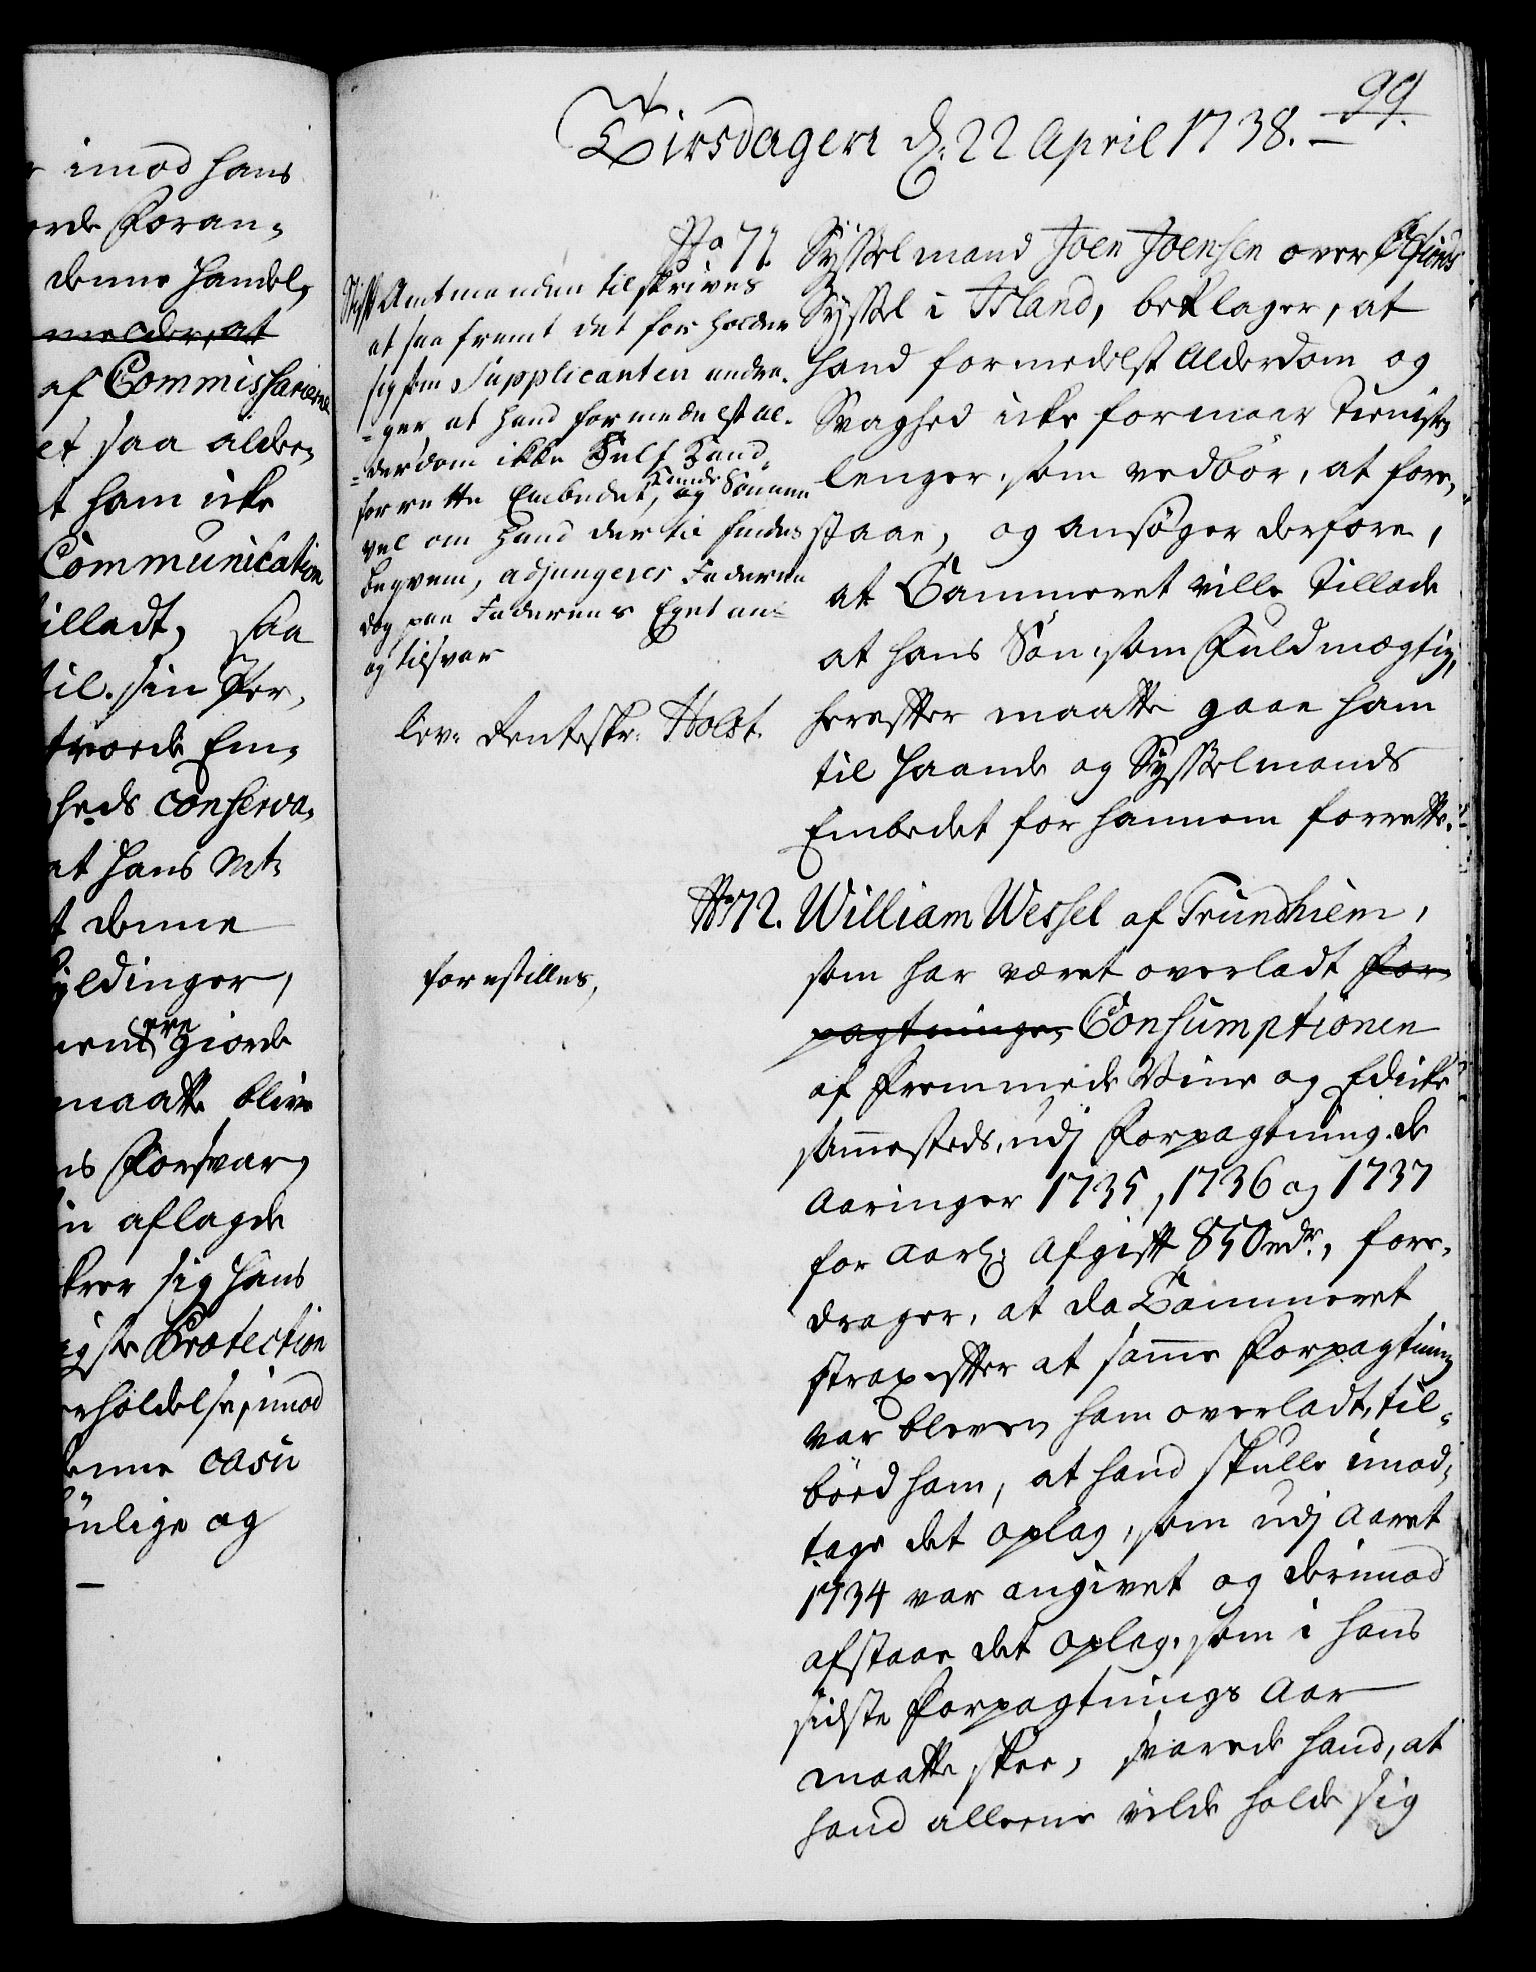 imod hans
orde Foran-
denne Handel,
melder, at
af Commissarierne
et saa alde-
t ham icke
Communication
tilladt, saa
til sin For-
troede Em-
heds conserva-
at Hans Mt:
t denne
yldinger,
ere giorde
maatte blive
ns Forsvar,
in aflagde
krer sig Hans
igste Protection
erholdelse, imod
denne casu
önlige og
99.
Tirsdagen d: 22 April 1738.
No 71.
Sysselmand Joen Joensen over
Syssel i Island, beklager, at
hand formedelst Alderdom og
Svaghed icke formaar Tienisten
lenger, som vedbör, at fore-
staae, og ansöger derfore,
at Cammeret ville tillade
at hans Sön, som Fuldmægtig,
herefter maatte gaae ham
til Haande og Sysselmands
Embedet for hannem forrette.
Stift Amtmanden tilskrives
at saa fremt det forholder
sig som Supplicanten andra-
-ger at hand formedelst al-
-derdom ikke Self kand
forrette Embedet, og Sönnen
vel om hand dertil findes
beqvem, adjungeres Faderen
dog paa Faderens Eget an-
og tilsvar
lev: Renteskr: Holst.
No 72.
William Wessel af Trundhiem,
som har været overladt For-
pagtningen Consumptionen
af Fremmede Viine og Edicke
sammesteds, udj Forpagtning de
Aaringer 1735, 1736 og 1737
for aarl: Afgift 850 rdr., fore-
drager, at da Cammeret
strax efter at samme Forpagtning
var bleven ham overladt, til-
böed ham, at hand skulle imod-
tage det oplag, som udj Aaret
1734 var angivet og derimod
afstaae det oplag, som i hans
sidste Forpagtnings Aar
maatte skee, svarede hand, at
hand alleene vilde holde sig
forestilles,